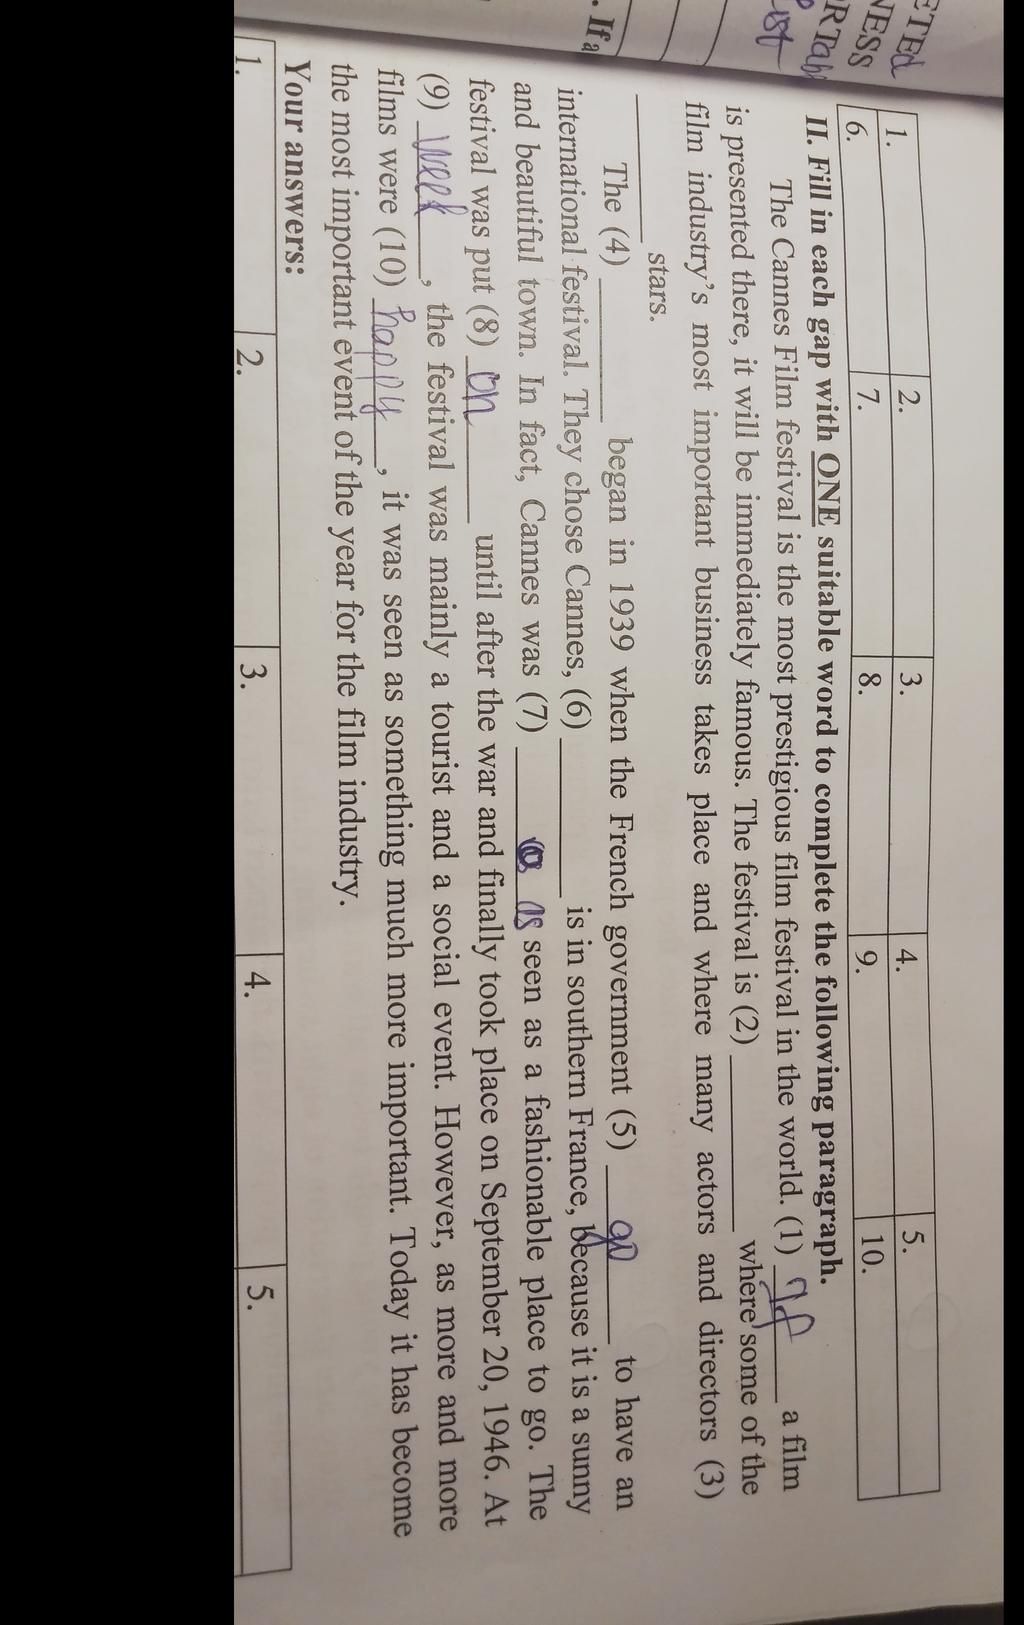 ETEd
NESS
RTab
ist
. If a
1. 2. 3. 4. 5.
6. 7. 8. 9. 10.
II. Fill in each gap with ONE suitable word to complete the following paragraph.
The Cannes Film festival is the most prestigious film festival in the world. (1) If a film
is presented there, it will be immediately famous. The festival is (2) ______ where some of the
film industry's most important business takes place and where many actors and directors (3)
______ stars.
The (4) ______ began in 1939 when the French government (5) ______ to have an
international festival. They chose Cannes, (6) ______ is in southern France, because it is a sunny
and beautiful town. In fact, Cannes was (7) ______ as seen as a fashionable place to go. The
festival was put (8) on until after the war and finally took place on September 20, 1946. At
(9) week, the festival was mainly a tourist and a social event. However, as more and more
films were (10) happy, it was seen as something much more important. Today it has become
the most important event of the year for the film industry.
Your answers:
1. 2. 3. 4. 5.